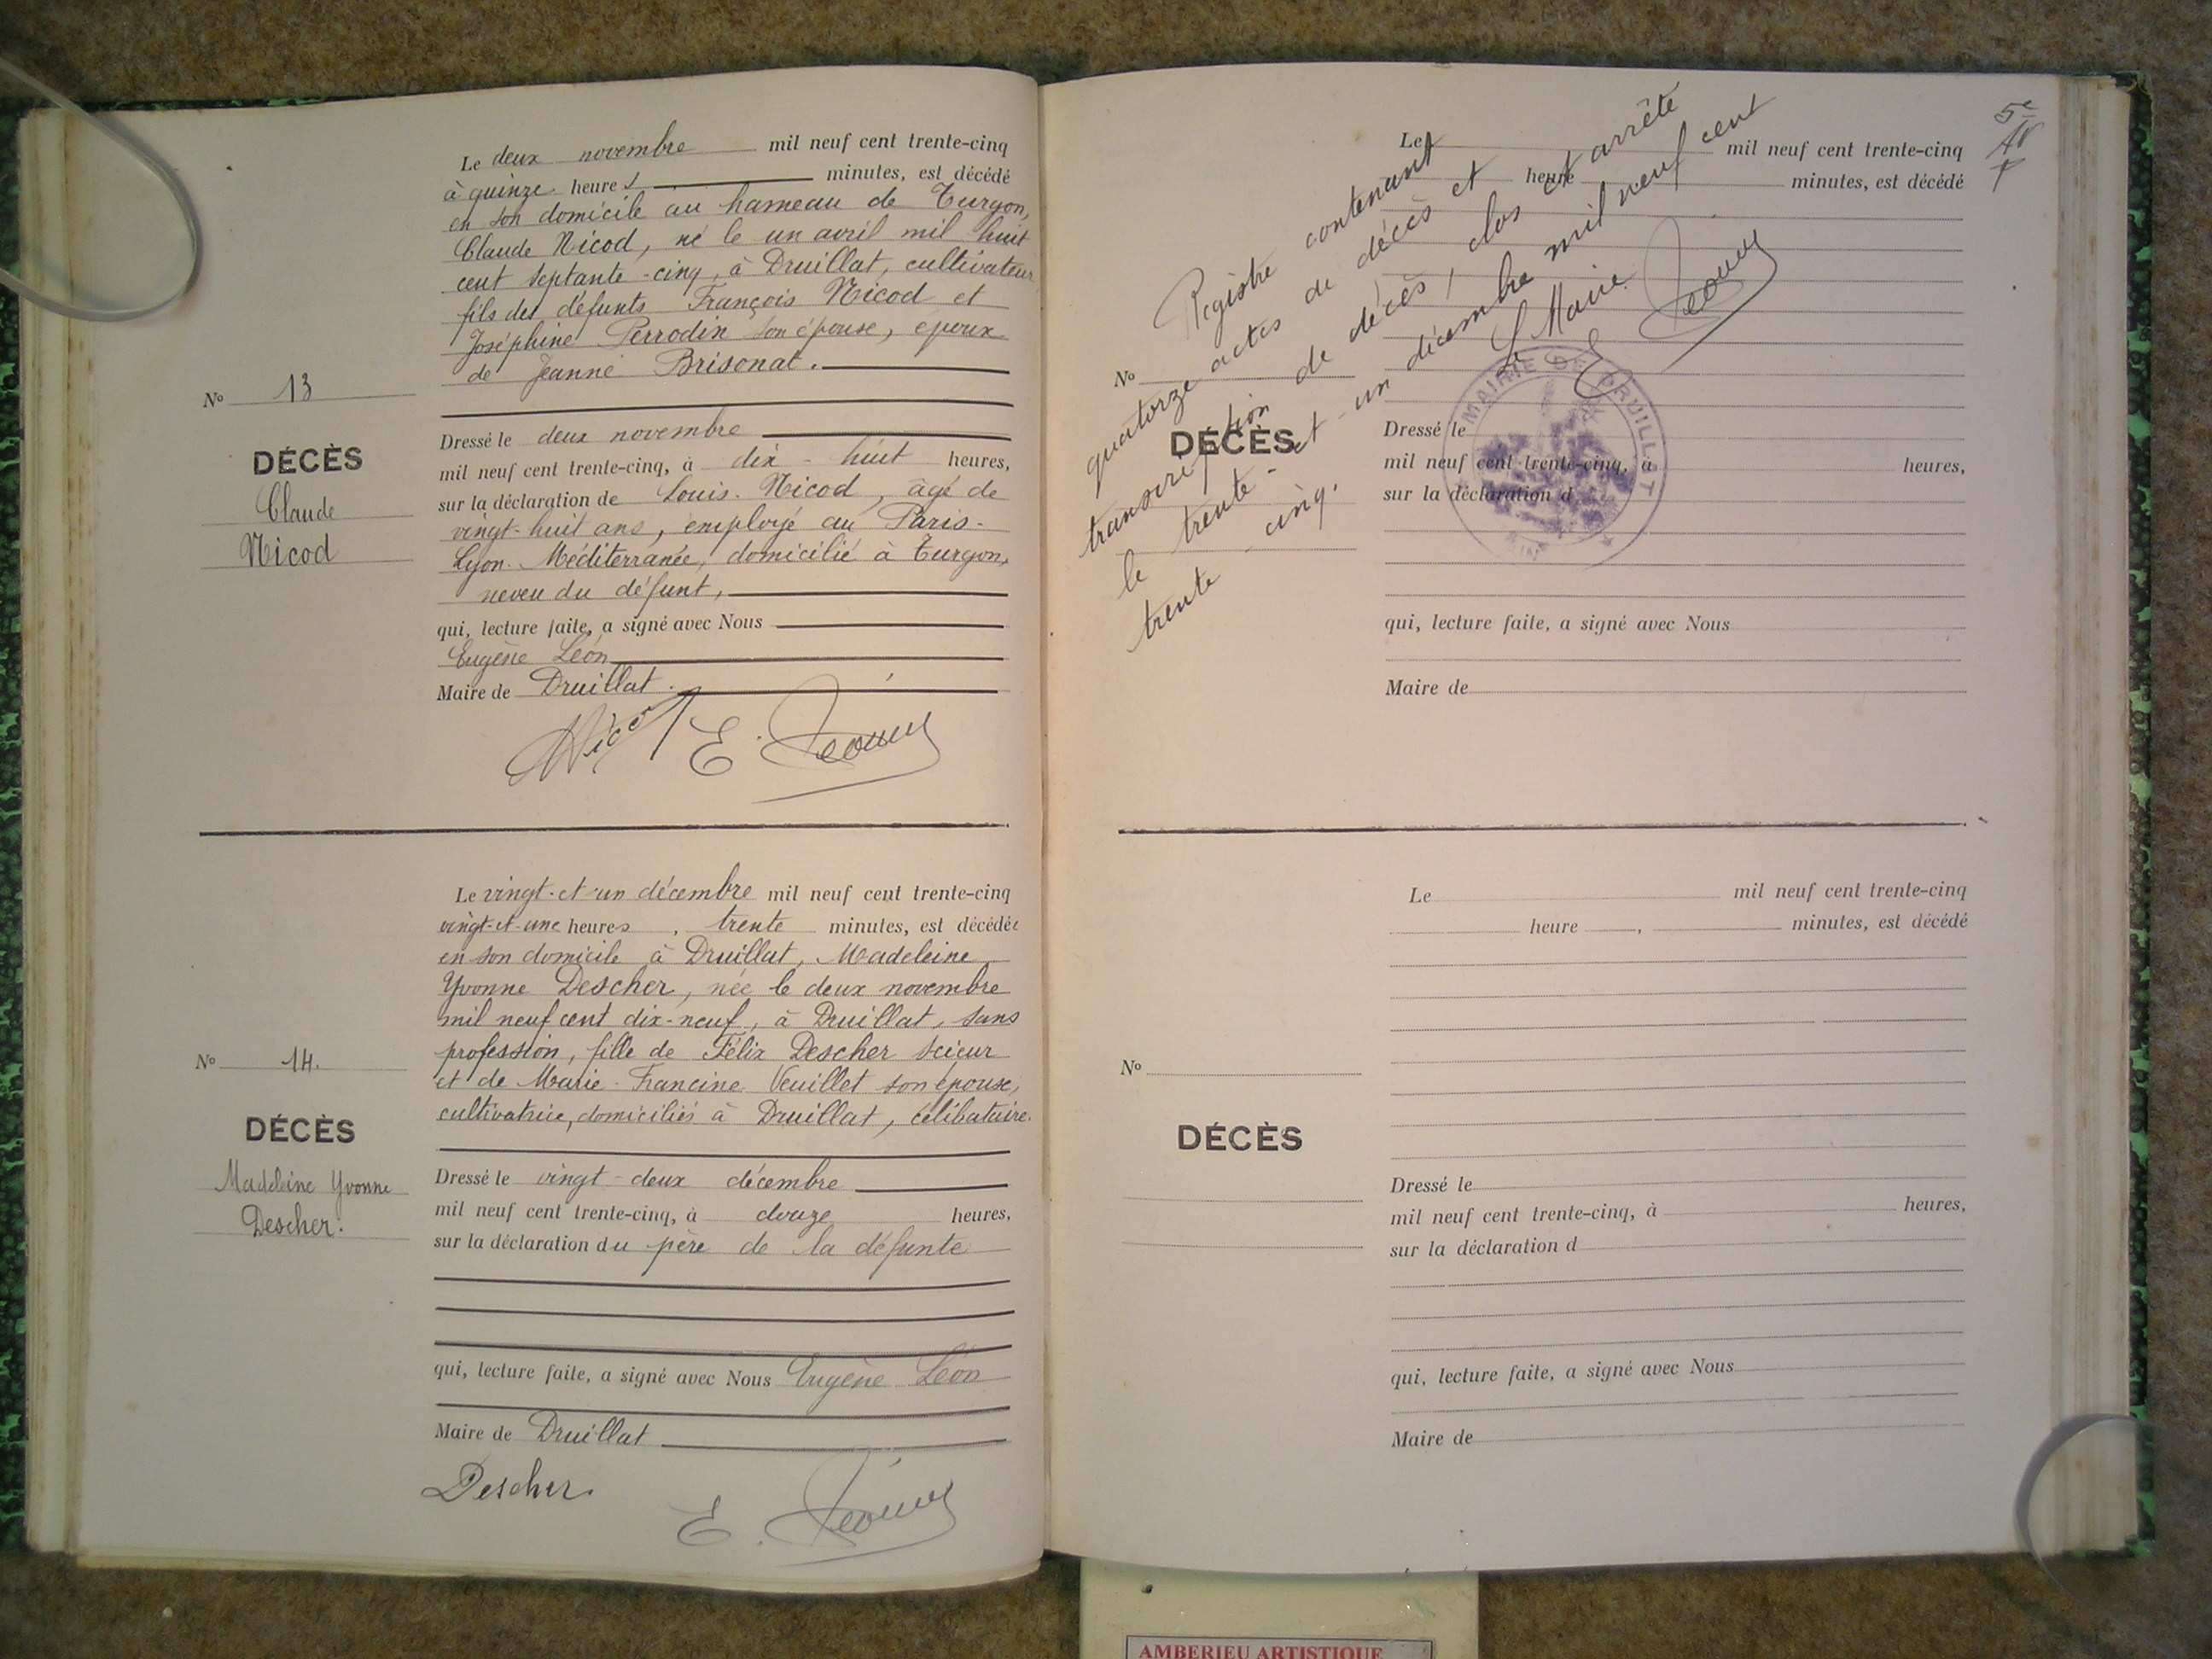 Le deux novembre mil neuf cent trente-cinq
à quinze heures minutes, est décédé
en son domicile au hameau de Turgon,
Claude Nicod, né le un avril mil huit
cent septante-cinq, à Druillat, cultivateur
fils des défunts François Nicod et
Joséphine Perrodin son épouse, époux
de Jeanne Brisonat.
No 13
DÉCÈS
Claude
Nicod
Dressé le deux novembre
mil neuf cent trente-cinq, à dix-huit heures,
sur la déclaration de Louis Nicod, âgé de
vingt-huit ans, employé au Paris-
Lyon-Méditerranée, domicilié à Turgon,
neveu du défunt,
qui, lecture faite, a signé avec Nous
Eugène Léon
Maire de Druillat.
Nicod E.
Le vingt-et-un décembre mil neuf cent trente-cinq
vingt-et-une heures, trente minutes, est décédée
en son domicile à Druillat, Madeleine
Yvonne Descher, née le deux novembre
mil neuf cent dix-neuf, à Druillat, sans
profession, fille de Félix Descher scieur
et de Marie-Francine Veuillet son épouse,
cultivatrice, domiciliés à Druillat, célibataire.
No 14.
DÉCÈS
Madeleine Yvonne
Descher.
Dressé le vingt-deux décembre
mil neuf cent trente-cinq, à douze heures,
sur la déclaration du père de la défunte
qui, lecture faite, a signé avec Nous Eugène Léon
Maire de Druillat
Descher. E.
5e
Registre contenant
quatorze actes de décès et
transcription de décès, clos et arrêté
le trente-et-un décembre mil neuf cent
trente-cinq.
Le Maire
E.
MAIRIE DE DRUILLAT
Le mil neuf cent trente-cinq
heure minutes, est décédé
No
DÉCÈS
Dressé le
mil neuf cent trente-cinq, à heures,
sur la déclaration d
qui, lecture faite, a signé avec Nous
Maire de
Le mil neuf cent trente-cinq
heure , minutes, est décédé
No
DÉCÈS
Dressé le
mil neuf cent trente-cinq, à heures,
sur la déclaration d
qui, lecture faite, a signé avec Nous
Maire de
AMBERIEU ARTISTIQUE